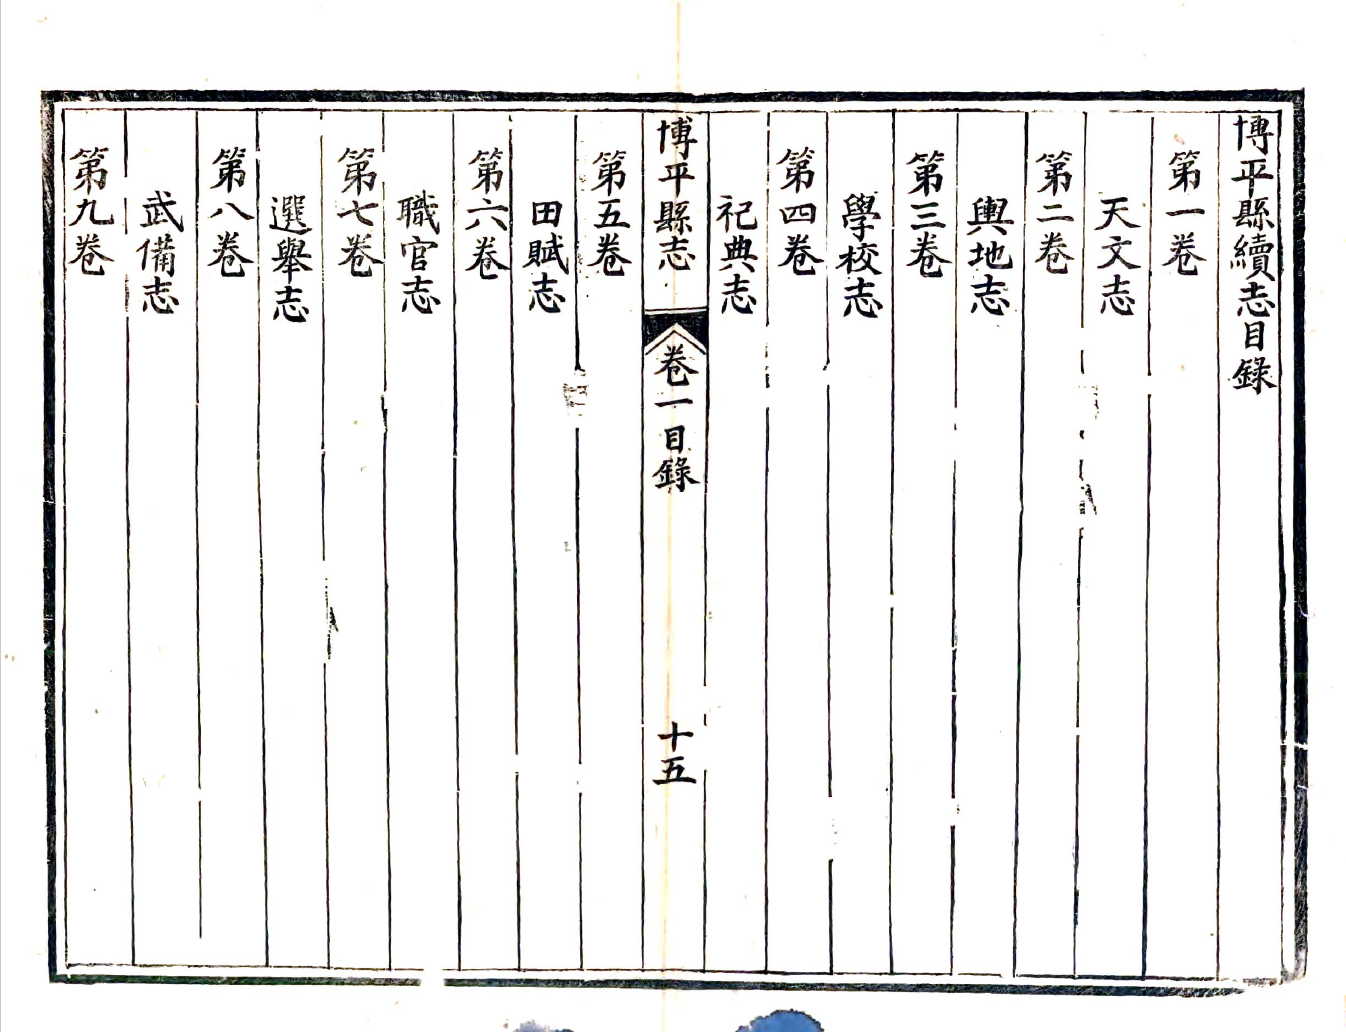 博平縣續志目錄
第一卷
天文志
第二卷
輿地志
第三卷
學校志
第四卷
祀典志
博平縣志
卷一目錄
十五
第五卷
田賦志
第六卷
職官志
第七卷
選舉志
第八卷
武備志
第九卷